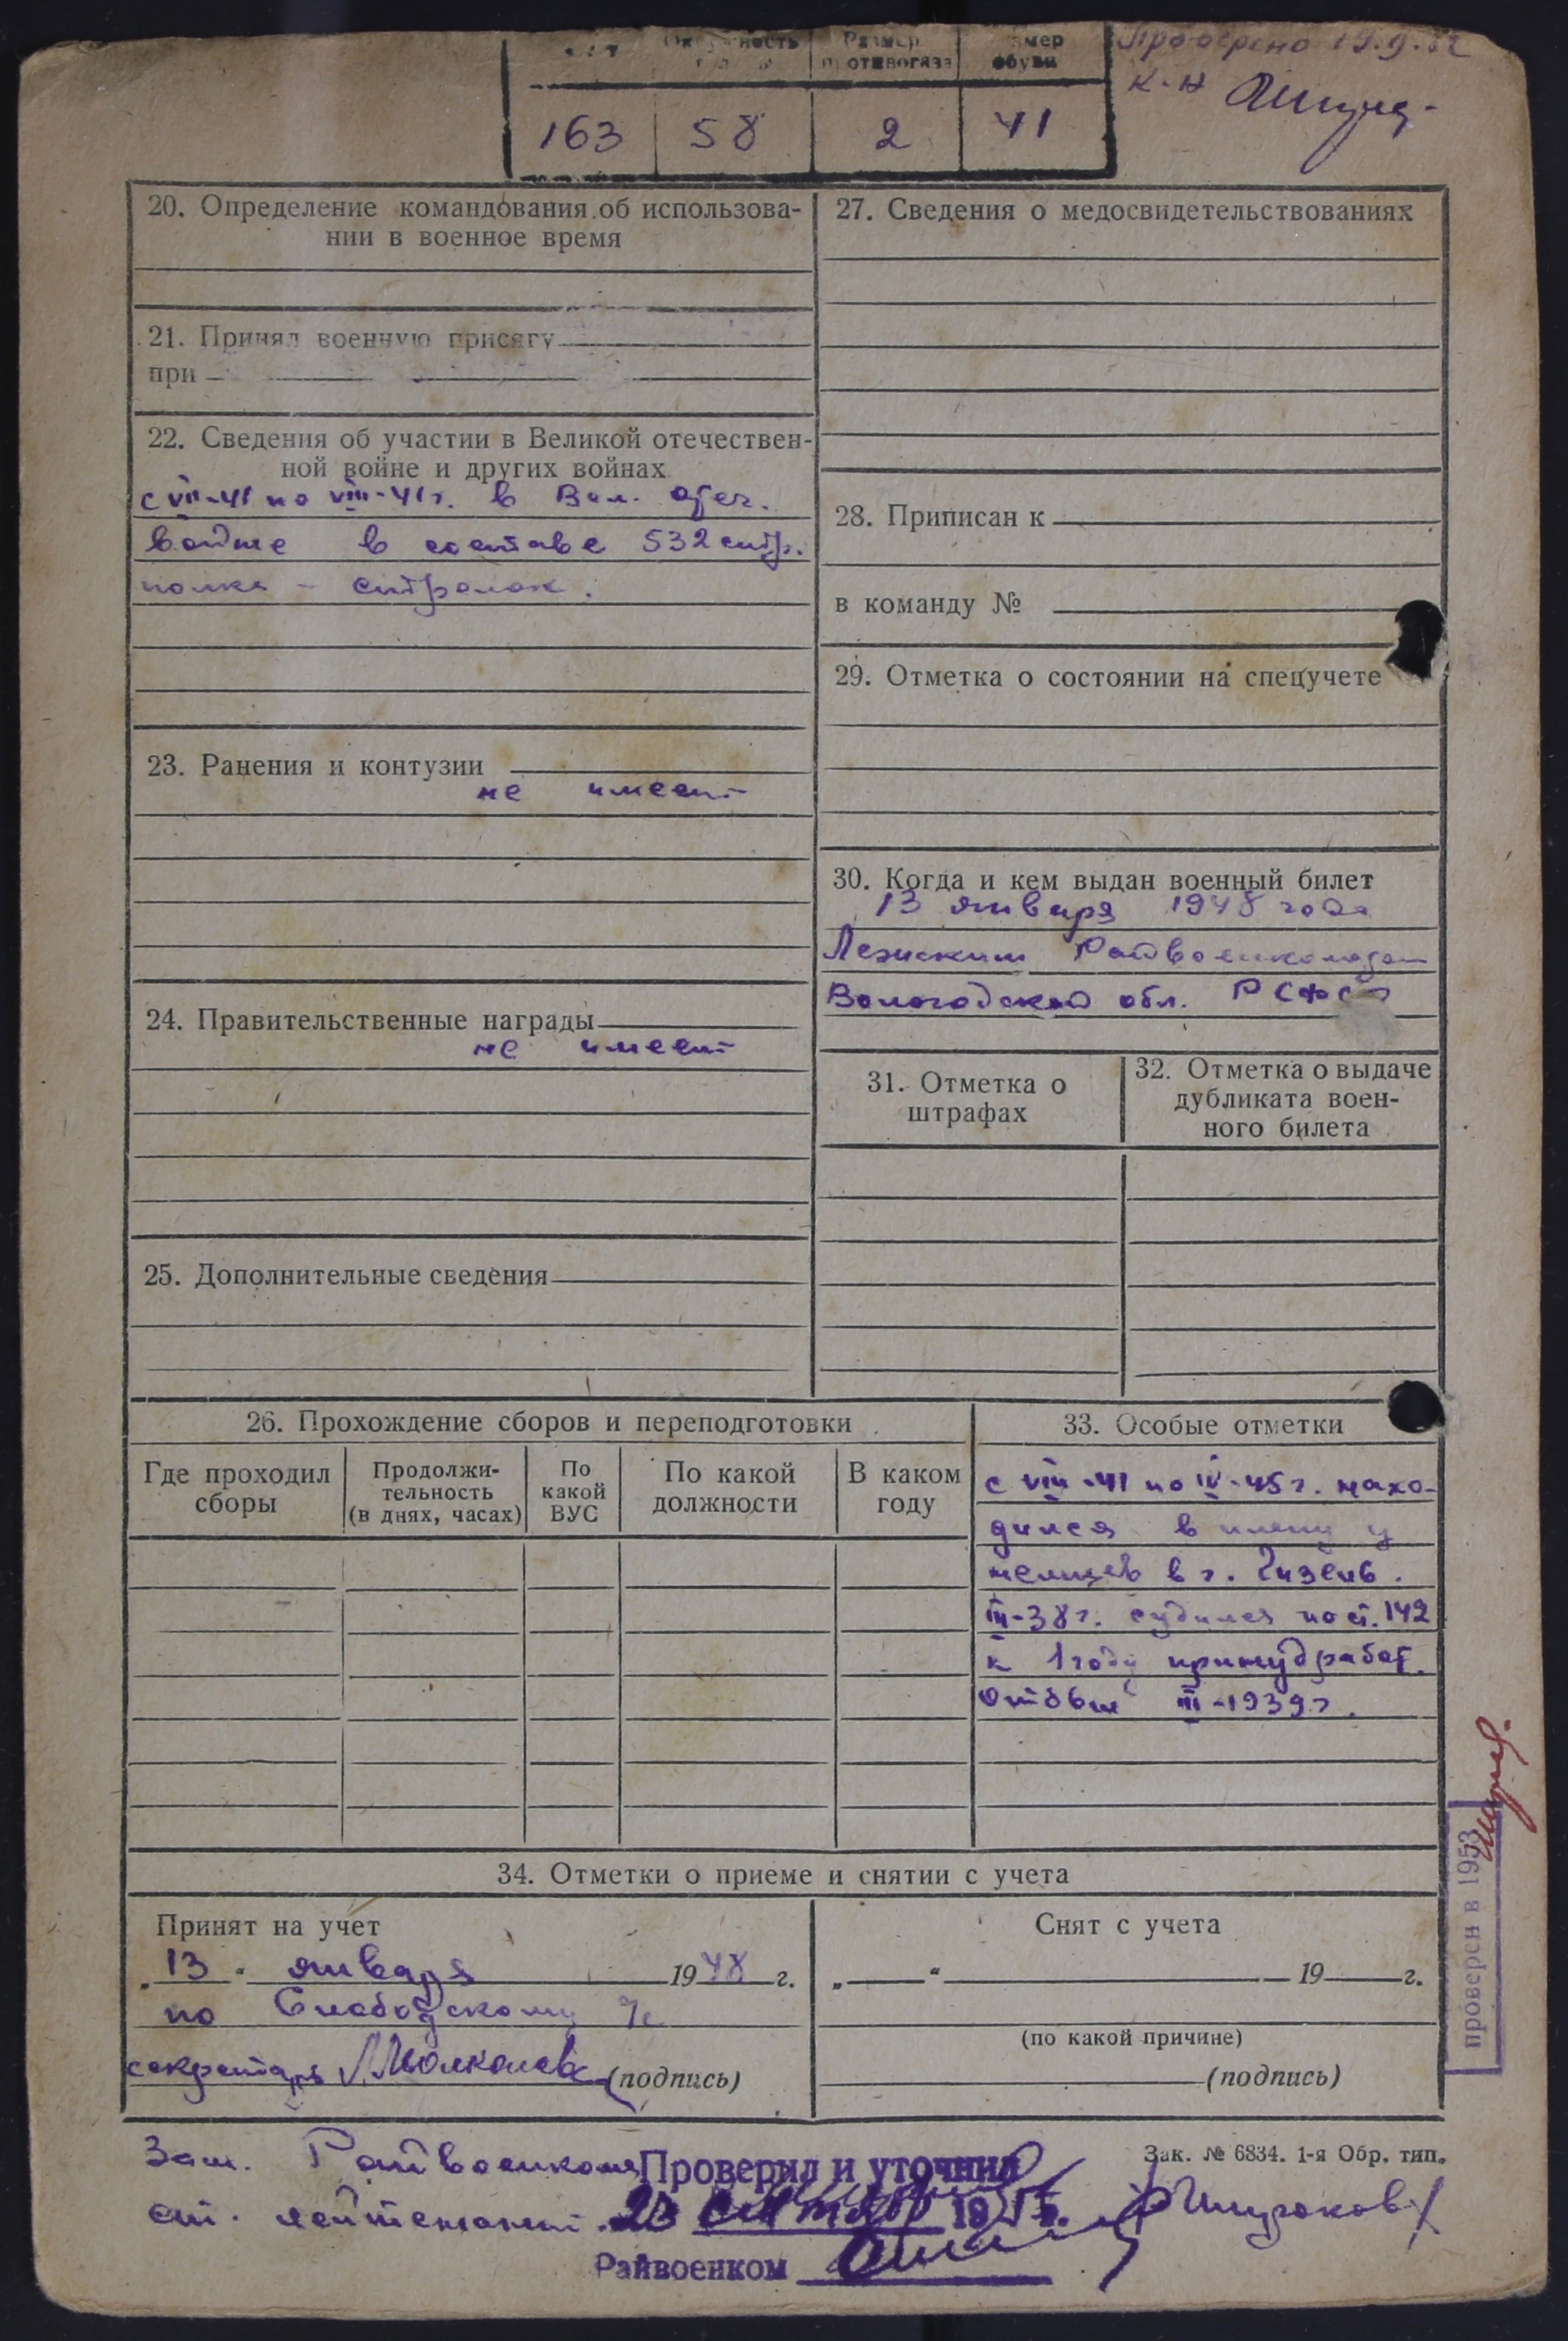 Размер противогаза
обуви
163 58 2 41
Проверено 19.9.52
к-н
20. Определение командования об использова-
нии в военное время
21. Принял военную присягу
при
22. Сведения об участии в Великой отечествен-
ной войне и других войнах
с VII-41 по VIII-41 г. в Вел. отеч.
войне в составе 532 стр.
полка – стрелок.
23. Ранения и контузии
не имеет
24. Правительственные награды
не имеет
25. Дополнительные сведения
27. Сведения о медосвидетельствованиях
28. Приписан к
в команду №
29. Отметка о состоянии на спецучете
30. Когда и кем выдан военный билет
13 января 1948 года
Лежским Райвоенкоматом
Вологодской обл. РСФСР
31. Отметка о
штрафах
32. Отметка о выдаче
дубликата воен-
ного билета
26. Прохождение сборов и переподготовки
Где проходил
сборы
Продолжи-
тельность
(в днях, часах)
По
какой
ВУС
По какой
должности
В каком
году
33. Особые отметки
с VIII-41 по IV-45 г. нахо-
дился в плену у
немцев в г. Гизень.
III-38 г. судился по ст. 142
к 1 году принудработ.
Отбыл III-1939 г.
34. Отметки о приеме и снятии с учета
Принят на учет
„13“ января 1948 г.
по Слободскому с/с
секретарь (подпись)
Снят с учета
„ “ 19 г.
(по какой причине)
(подпись)
проверен в 1953
Зак. № 6834. 1-я Обр. тип.
Зам. Райвоенкома
ст. лейтенант
Проверил и уточнил
Райвоенком